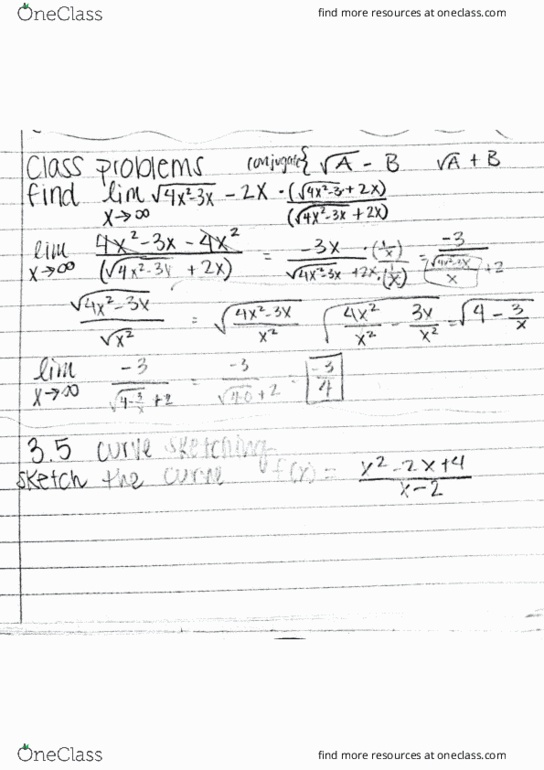 OneClass
find more resources at oneclass.com
Class problems conjugate{ √A - B √A + B
find lim x→∞ √4x²-3x - 2x · (√4x²-3x + 2x)/(√4x²-3x + 2x)
lim x→∞ 4x²-3x-4x²/(√4x²-3x + 2x) = -3x/√4x²-3x + 2x · (1/x)/(1/x) = -3/√4x²-3x/x + 2
√4x²-3x/√x² = √4x²-3x/x² √4x²/x² - 3x/x² = √4 - 3/x
lim x→∞ -3/√4-3/x + 2 = -3/√4-0 + 2 = -3/4
3.5 curve sketching
sketch the curve f(x) = x²-2x+4/x-2
OneClass
find more resources at oneclass.com